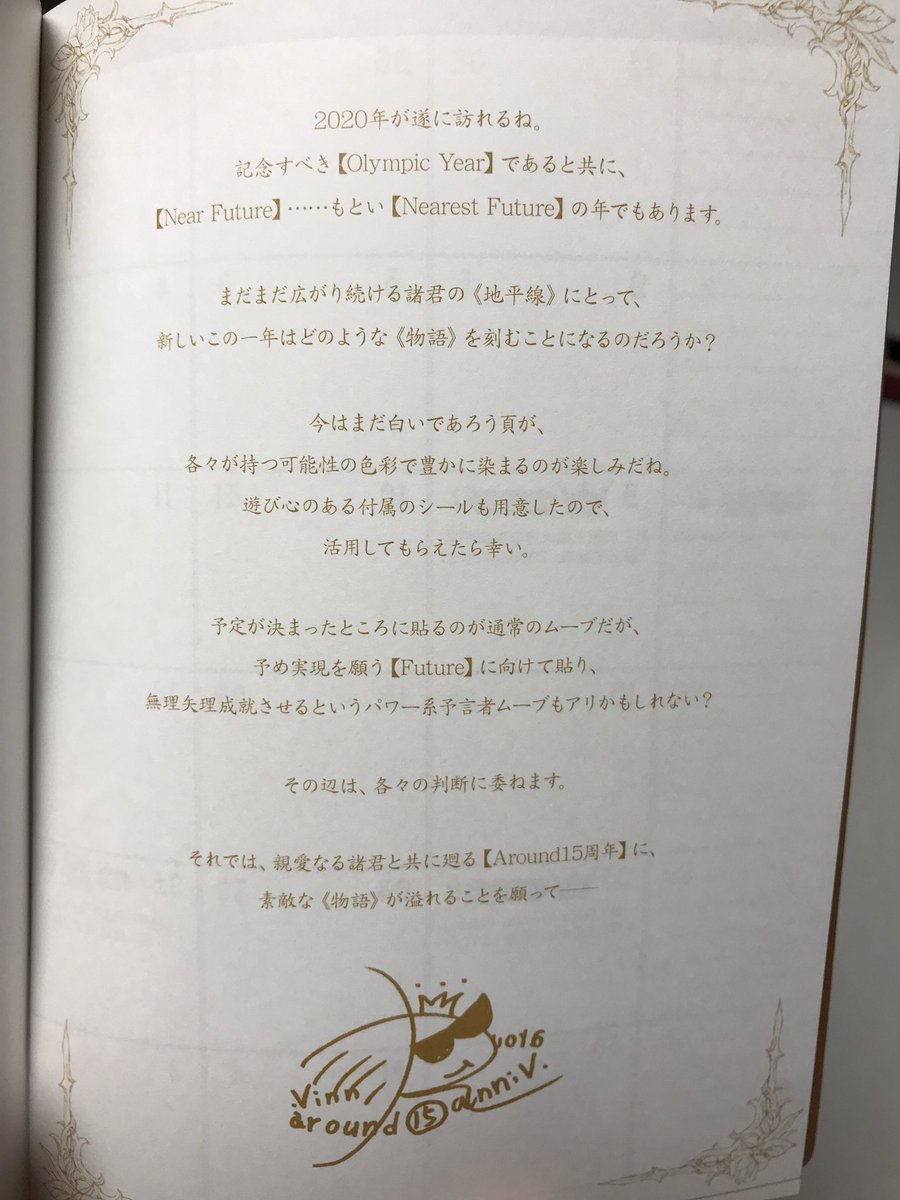 2020年が遂に訪れるね。
記念すべき【Olympic Year】であると共に、
【Near Future】……もとい【Nearest Future】の年でもあります。
まだまだ広がり続ける諸君の《地平線》にとって、
新しいこの一年はどのような《物語》を刻むことになるのだろうか？
今はまだ白いであろう頁が、
各々が持つ可能性の色彩で豊かに染まるのが楽しみだね。
遊び心のある付属のシールも用意したので、
活用してもらえたら幸い。
予定が決まったところに貼るのが通常のムーブだが、
予め実現を願う【Future】に向けて貼り、
無理矢理成就させるというパワー系予言者ムーブもアリかもしれない？
その辺は、各々の判断に委ねます。
それでは、親愛なる諸君と共に廻る【Around15周年】に、
素敵な《物語》が溢れることを願って──
Vinn
around 15 anniv.